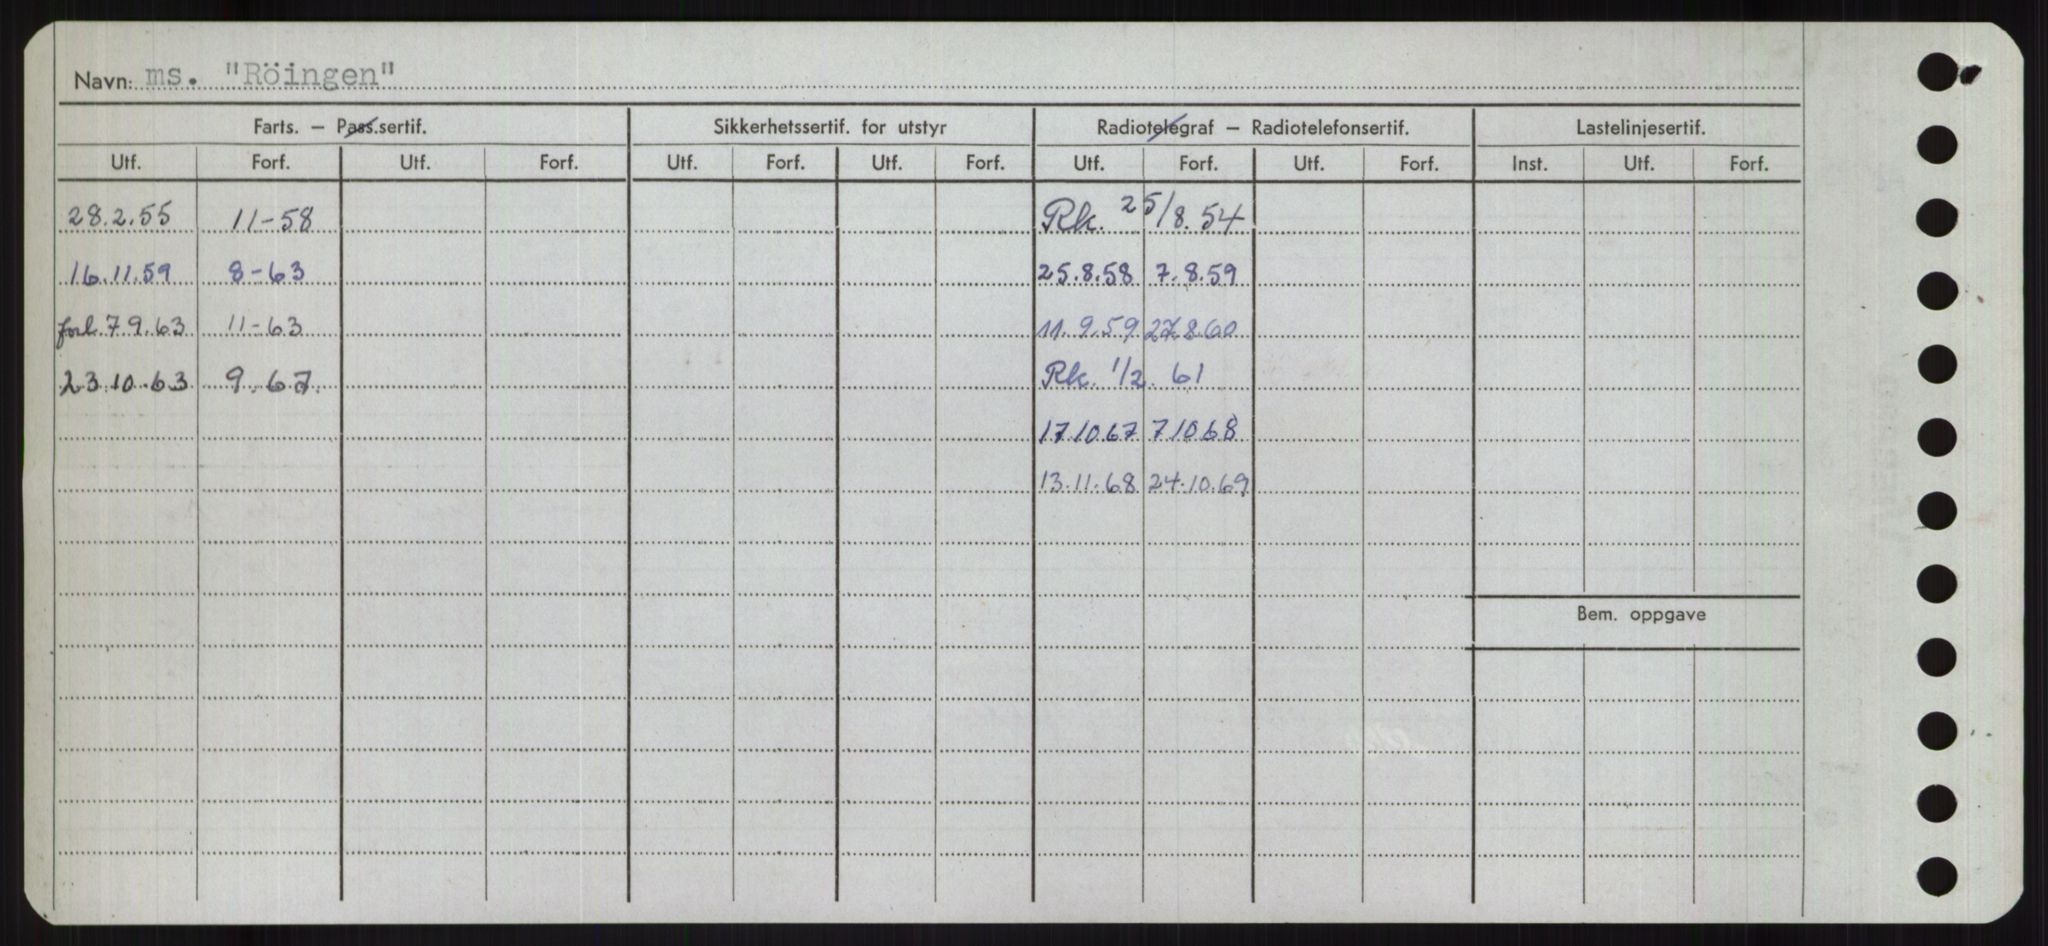 Navn: ms. "Röingen"
Farts. — Pass.sertif. Sikkerhetssertif. for utstyr Radiotelegraf — Radiotelefonsertif. Lastelinjesertif.
Utf. Forf. Utf. Forf. Utf. Forf. Utf. Forf. Utf. Forf. Utf. Forf. Inst. Utf. Forf.
28.2.55 11-58 Rk. 25/8.54
16.11.59 8-63 25.8.58 7.8.59
forl. 7.9.63 11-63 11.9.59 27.8.60
23.10.63 9.67. Rk. 1/2.61
17.10.67 7.10.68
13.11.68 24.10.69
Bem. oppgave